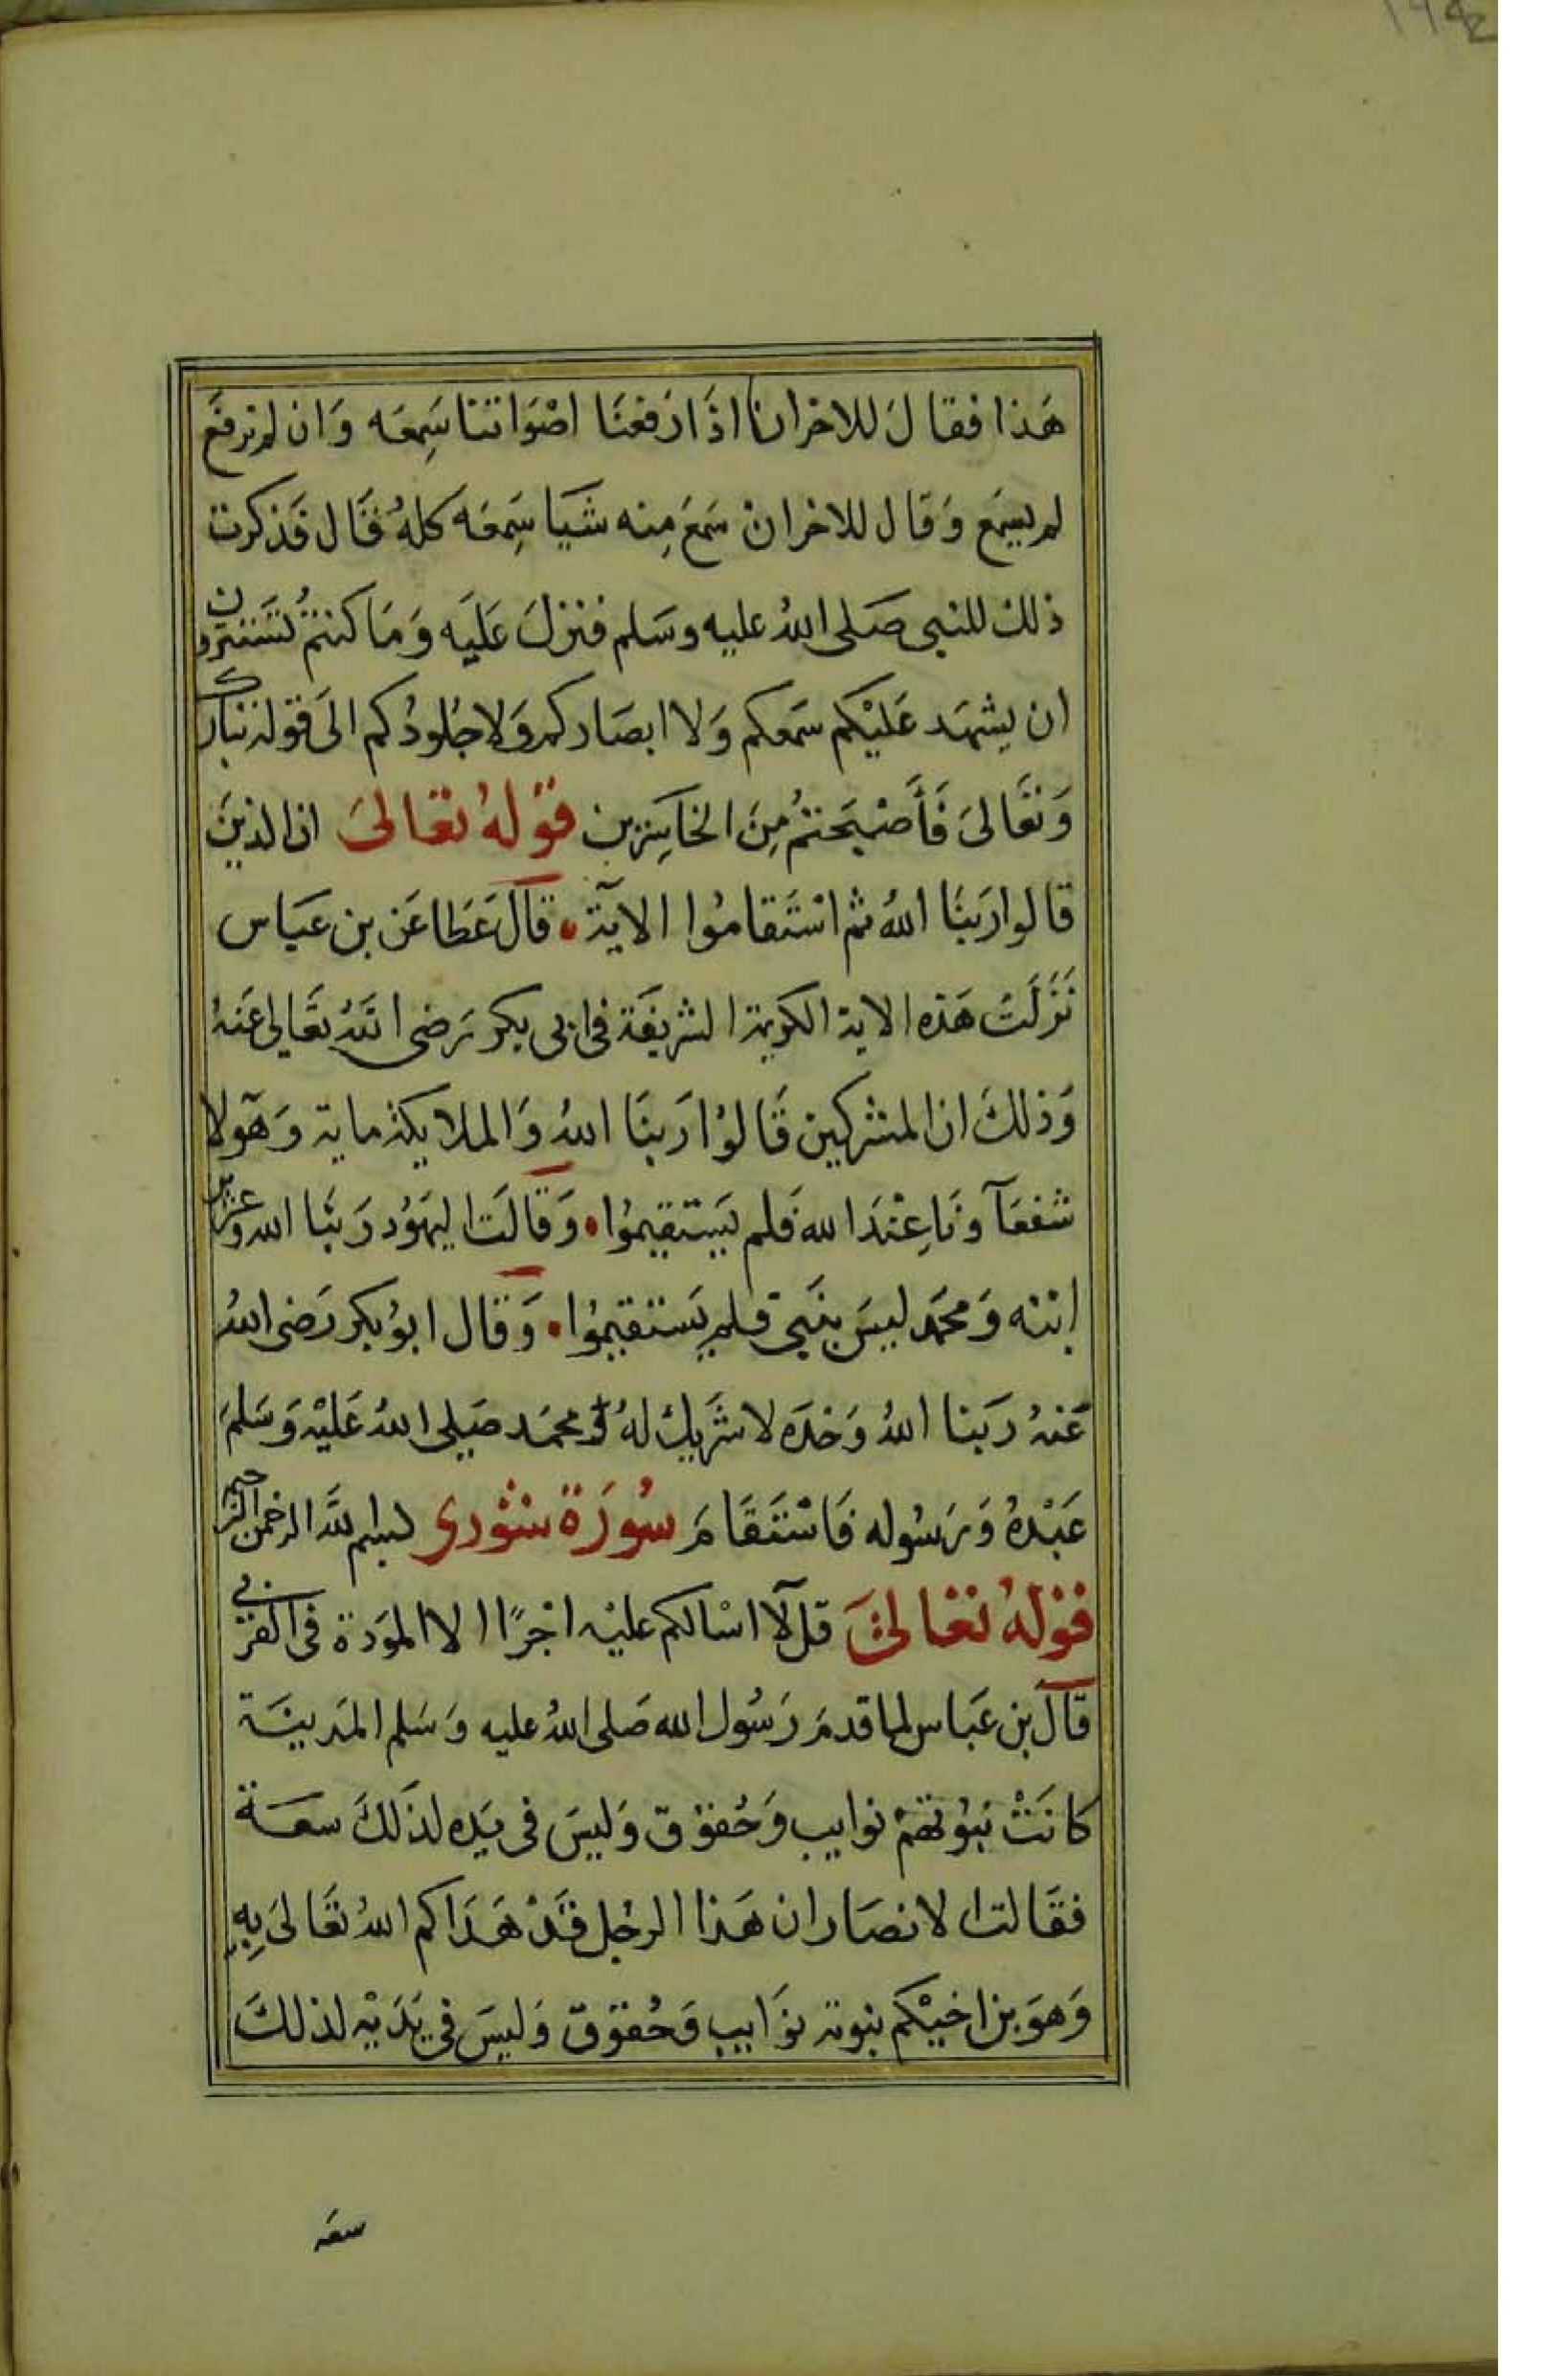 هَذا فقالَ للاخر انا اذَا رَفعنَا اصْوَاتنا سَمِعَه وَان لم نرفعَ
لم يسمَع وَقال للاخر انْ سَمعَ مِنه شَيَا سَمِعَه كلهُ فقَال فَذكرت
ذلك للنبي صَلى اللهُ عليه وسَلم فنزلَ عَليَه وَمَا كنتمُ تستترون
ان يشهَد عَليْكم سمَعكم وَلا ابصَاركم وَلا جُلودُكم الىَ قوله تبارك
وَتعَالىَ فَأصْبَحتمُ مِنَ الخاسِرين قوْلهُ تعَالىَ ان الذينَ
قالوا رَبنَا اللهُ ثم استَقامُوا الايَة قالَ عَطا عَن بن عَباس
نَزَلَتْ هَذه الاية الكريمة الشريفَة في ابي بكر رَضى اللهُ تعَالى عَنهُ
وَذلكَ ان المشركين قَالوْا رَبنَا اللهُ وَالملايكة ماية وَهَولا
شفعَآ ونَا عِنْدَ الله فَلم يَستقيموُا وَقالَت اليهَوُد رَبنَا الله وعزير
ابنه وَمحمَد ليسَ بنَبيّ فلم يَستقيموُا وَقال ابوُ بكر رَضى اللهُ
عَنهُ رَبَنا اللهُ وَحْدَه لا شَريك لهُ وَمحمَد صَلى اللهُ عَليْه وَسَلمَ
عَبْدهُ وَرَسُوله فَاسْتَقَامَ سُورَة شورى بسم لله الرحمن الرحيم
قوْلهُ تعَالىَ قل لآ اسْالكم عليْه اجْرًا الا الموَدة فى القربى
قالَ بن عَباس لما قدمَ رَسُول الله صَلى اللهُ عليه وَسَلم المدَينَة
كانَتْ بَنوُتهمْ نوايب وَحُقوُق وَليسَ فى يَده لذَلكَ سعَة
فقَالت الانصَار ان هَذا الرجُل قدْ هَدَاكم اللهُ تعَالىَ بِهِ
وَهوَ بن اخيْكم بنوته نوَايب وَحُقوُق وَليسَ فى يَدَيْه لذلكَ
سعَه